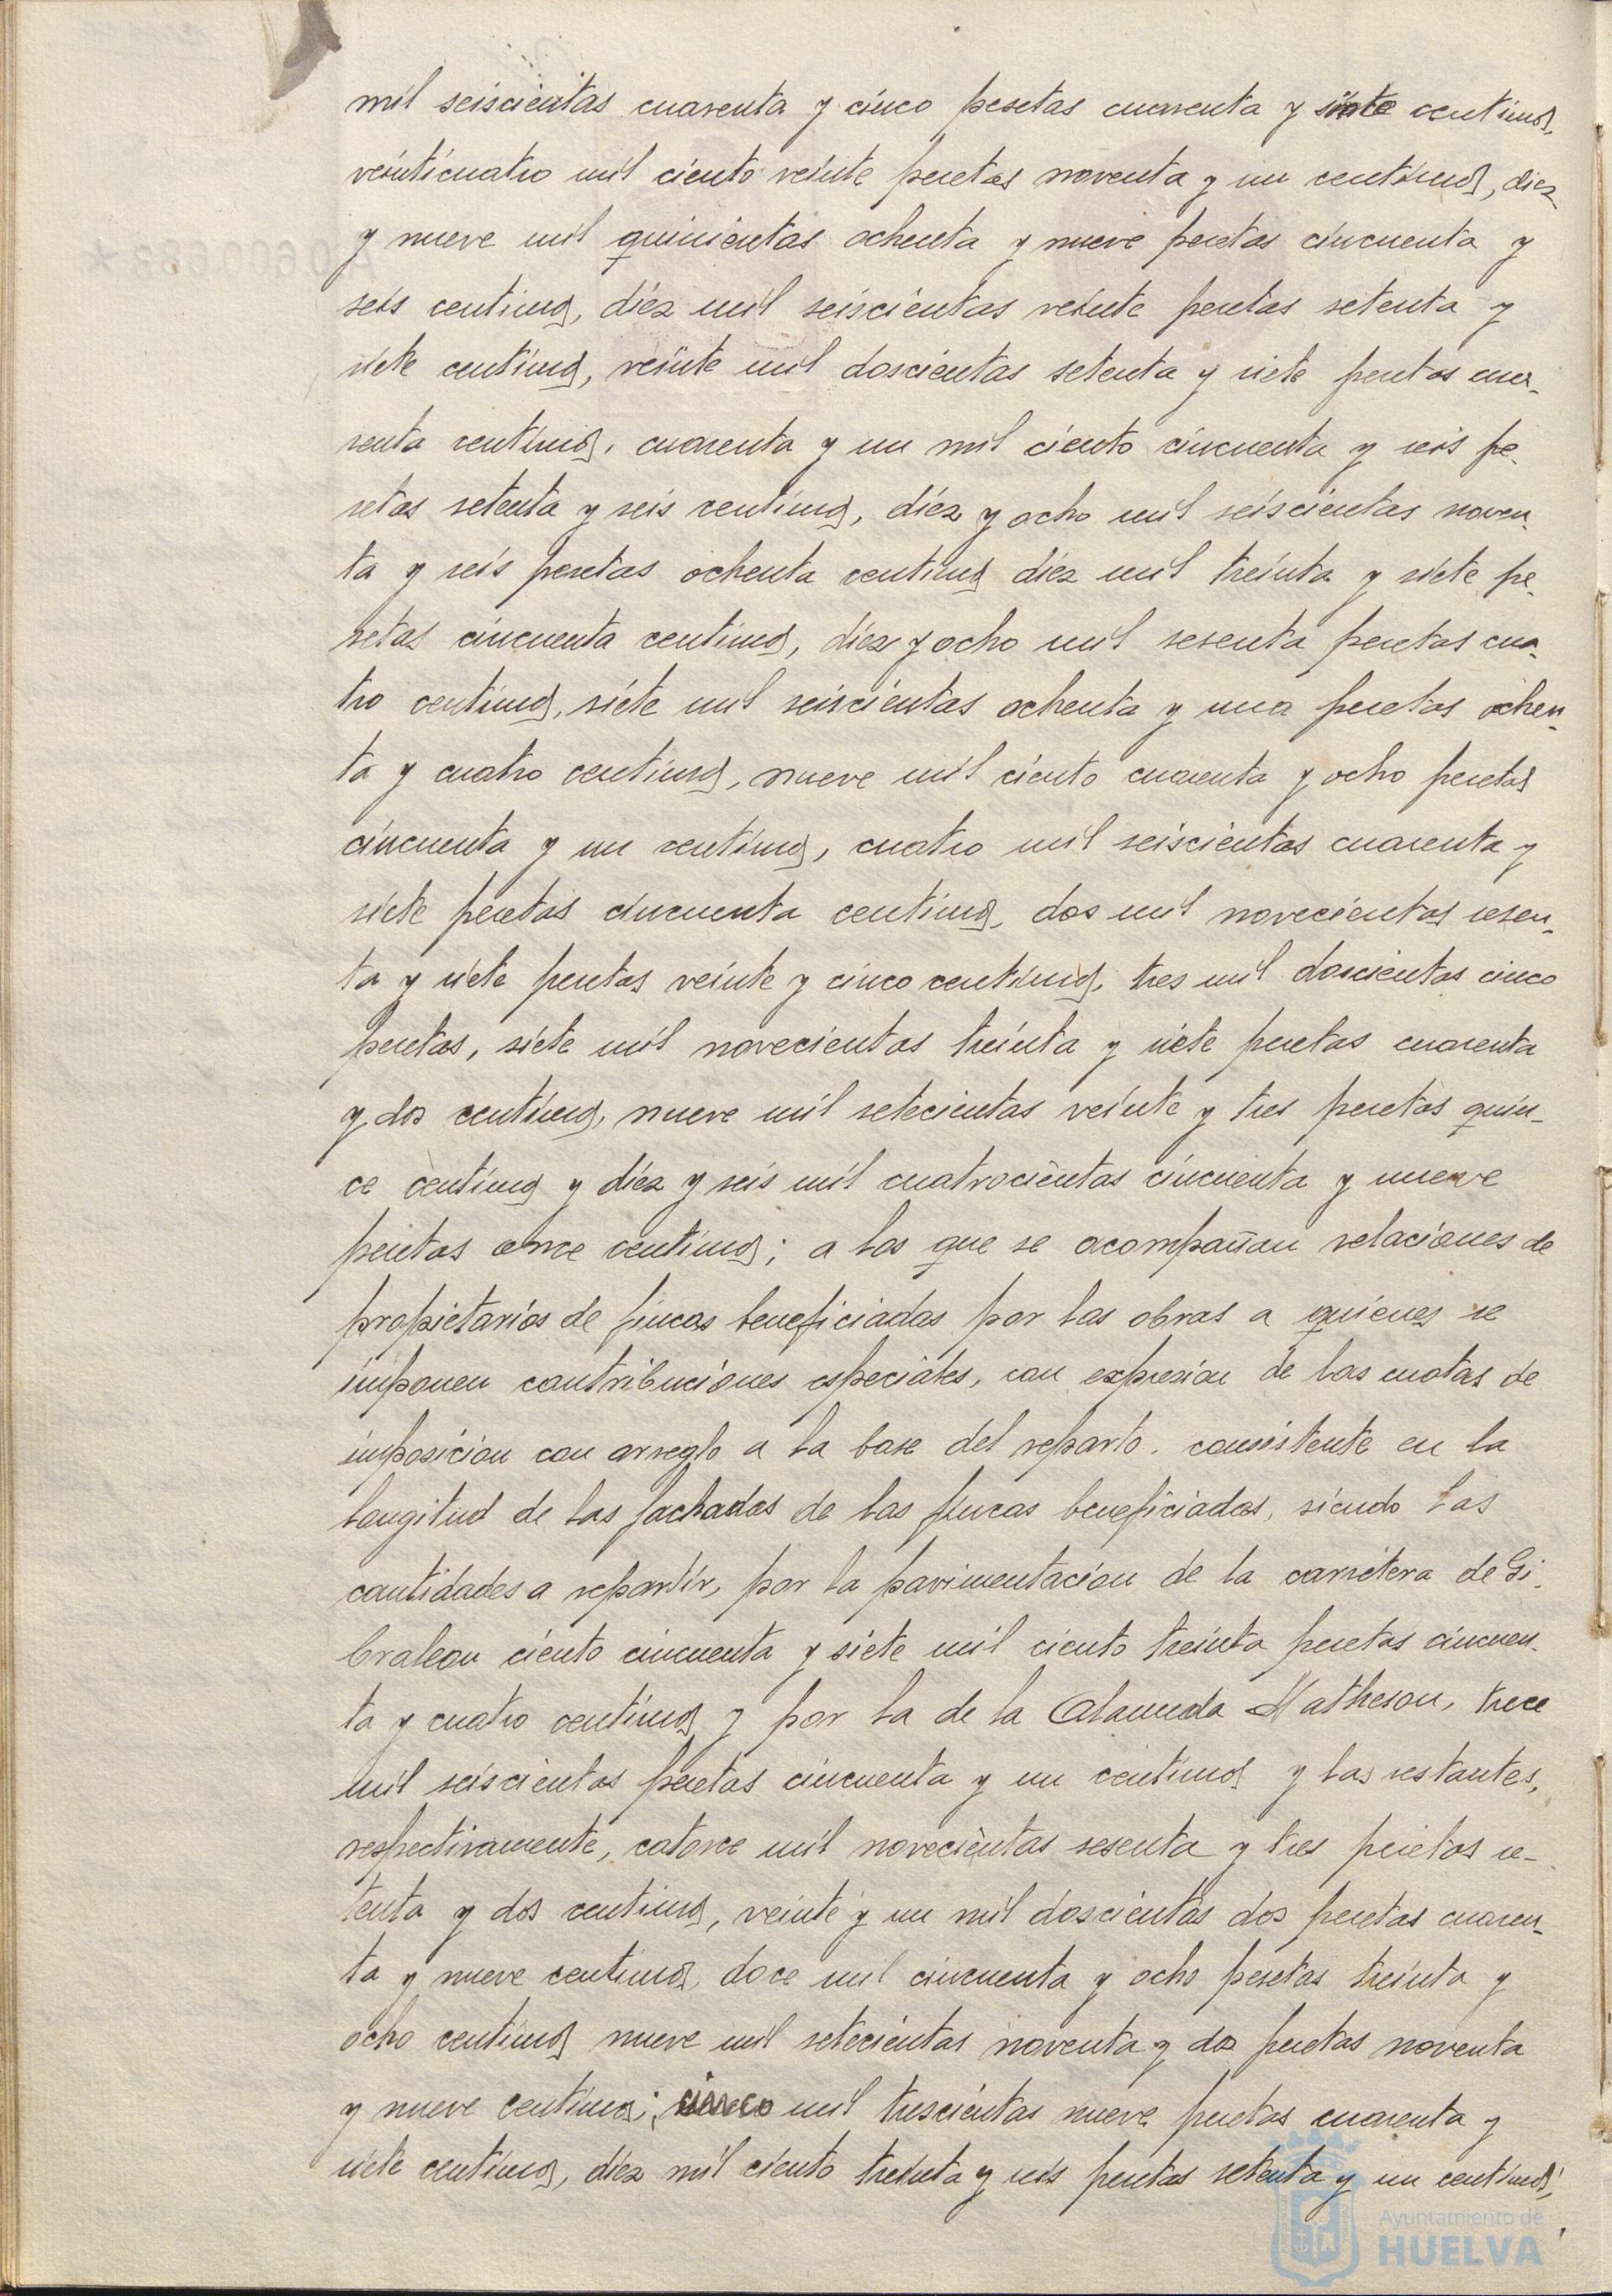 mil seiscientas cuarenta y cinco pesetas cuarenta y siete centimos,
veinticuatro mil ciento veinte pesetas noventa y un centimos, diez
y nueve mil quinientas ochenta y nueve pesetas cincuenta y
seis centimos, diez mil seiscientas veinte pesetas setenta y
siete centimos, veinte mil doscientas setenta y siete pesetas cua-
renta centimos, cuarenta y un mil ciento cincuenta y seis pe-
setas setenta y seis centimos, diez y ocho mil seiscientas noven-
ta y seis pesetas ochenta centimos diez mil treinta y siete pe-
setas cincuenta centimos, diez y ocho mil sesenta pesetas cua-
tro centimos, siete mil seiscientas ochenta y una pesetas ochen-
ta y cuatro centimos, nueve mil ciento cuarenta y ocho pesetas
cincuenta y un centimos, cuatro mil seiscientas cuarenta y
siete pesetas cincuenta centimos, dos mil novecientas sesen-
ta y siete pesetas veinte y cinco centimos, tres mil doscientas cinco
pesetas, siete mil novecientas treinta y siete pesetas cuarenta
y dos centimos, nueve mil setecientas veinte y tres pesetas quin-
ce centimos y diez y seis mil cuatrocientas cincuenta y nueve
pesetas once centimos; a los que se acompañan relaciones de
propietarios de fincas beneficiadas por las obras a quienes se
imponen contribuciones especiales, con expresion de las cuotas de
imposicion con arreglo a la base del reparto. consistente en la
longitud de las fachadas de las fincas beneficiadas, siendo las
cantidades a repartir, por la pavimentacion de la carretera de Gi-
braleon ciento cincuenta y siete mil ciento treinta pesetas cincuen-
ta y cuatro centimos y por la de la Alameda Matheson, trece
mil seiscientas pesetas cincuenta y un centimos y las restantes,
respectivamente, catorce mil novecientas sesenta y tres pesetas se-
tenta y dos centimos, veinte y un mil doscientas dos pesetas cuaren-
ta y nueve centimos, doce mil cincuenta y ocho pesetas treinta y
ocho centimos nueve mil setecientas noventa y dos pesetas noventa
y nueve centimos; cinco mil trescientas nueve pesetas cuarenta y
siete centimos, diez mil ciento treinta y seis pesetas setenta y un centimos;
Ayuntamiento de
HUELVA